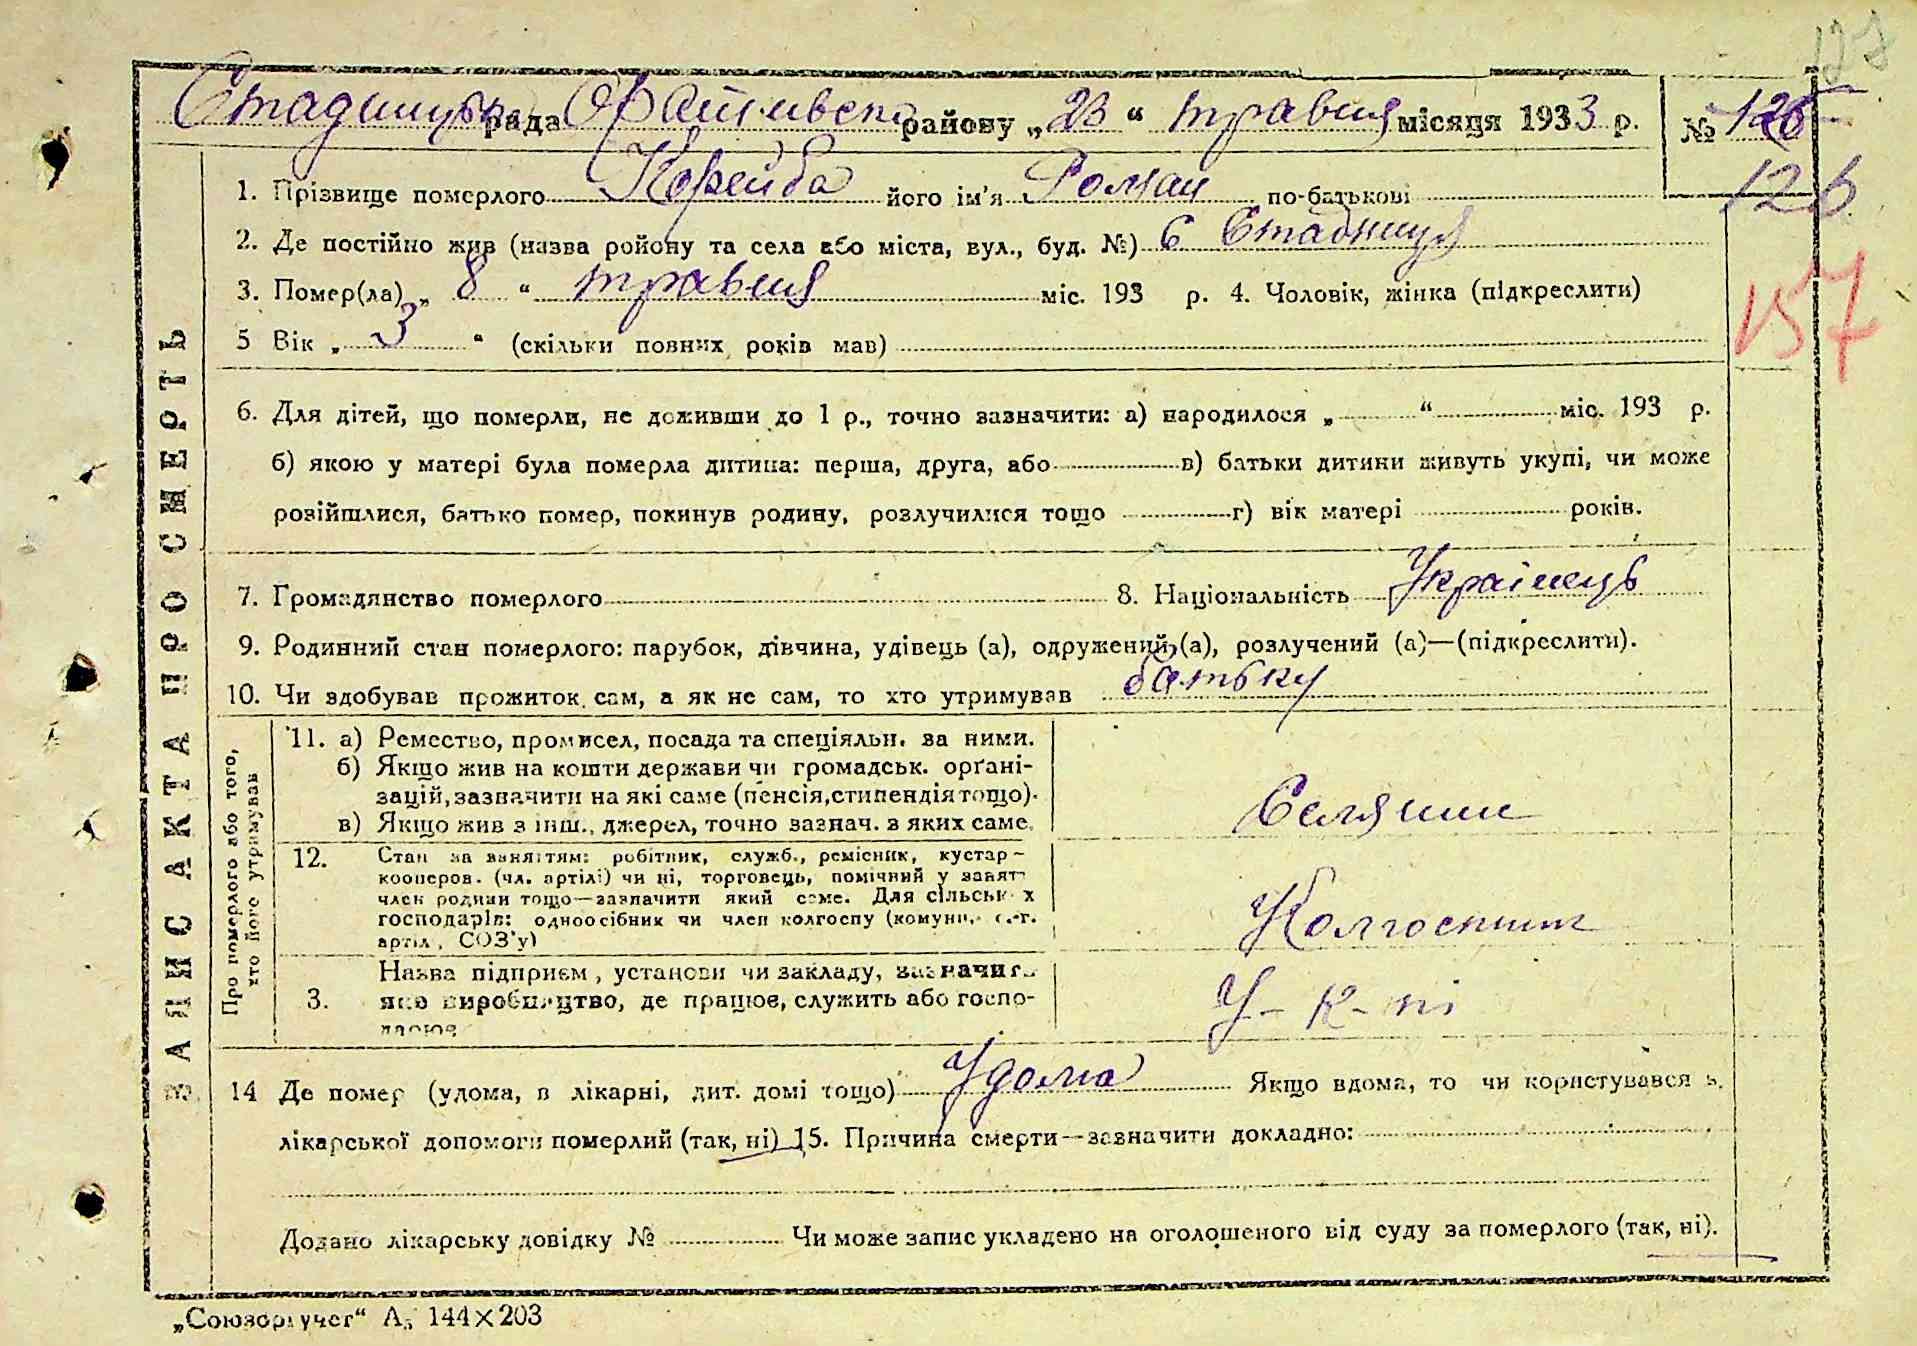 127
Стадницька рада Фастівського району „23“ травня місяця 1933 р. № 126
126
1. Прізвище померлого Корейба його ім'я Роман по-батькові
2. Де постійно жив (назва ройону та села або міста, вул., буд. №) с Стадниця
3. Помер(ла) „8“ травня міс. 193 р. 4. Чоловік, жінка (підкреслити)
157
5 Вік „3“ (скільки повних років мав)
6. Для дітей, що померли, не доживши до 1 р., точно зазначити: а) народилося „ “ міс. 193 р.
б) якою у матері була померла дитина: перша, друга, або в) батьки дитини живуть укупі, чи може
розійшлися, батько помер, покинув родину, розлучилися тощо г) вік матері років.
7. Громадянство померлого 8. Національність Українець
9. Родинний стан померлого: парубок, дівчина, удівець (а), одружений (а), розлучений (а)—(підкреслити).
10. Чи здобував прожиток сам, а як не сам, то хто утримував батьку
ЗАПИС АКТА ПРО СМЕРТЬ
Про померлого або того,
хто його утримував
11. а) Ремество, промисел, посада та спеціяльн. за ними.
б) Якщо жив на кошти держави чи громадськ. орґані-
зацій, зазначити на які саме (пенсія, стипендія тощо).
в) Якщо жив з інш., джерел, точно зазнач. з яких саме.
Селянин
12. Стан за заняттям: робітник, служб., ремісник, кустар-
кооперов. (чл. артілі) чи ні, торговець, помічний у занят
член родини тощо—зазначити який саме. Для сільськ х
господарів: одноосібник чи член колгоспу (комуни, с.-г.
артіл, СОЗ'у)
Колгоспник
3. Назва підприєм, установи чи закладу, зазначить
яке виробництво, де працює, служить або госпо-
дарює
У-к-пі
14 Де помер (удома, в лікарні, дит. домі тощо) Удома Якщо вдома, то чи користувався з
лікарської допомоги померлий (так, ні) 15. Причина смерти—зазначити докладно:
Додано лікарську довідку № Чи може запис укладено на оголошеного від суду за померлого (так, ні).
„Союзоргучет“ А5 144×203